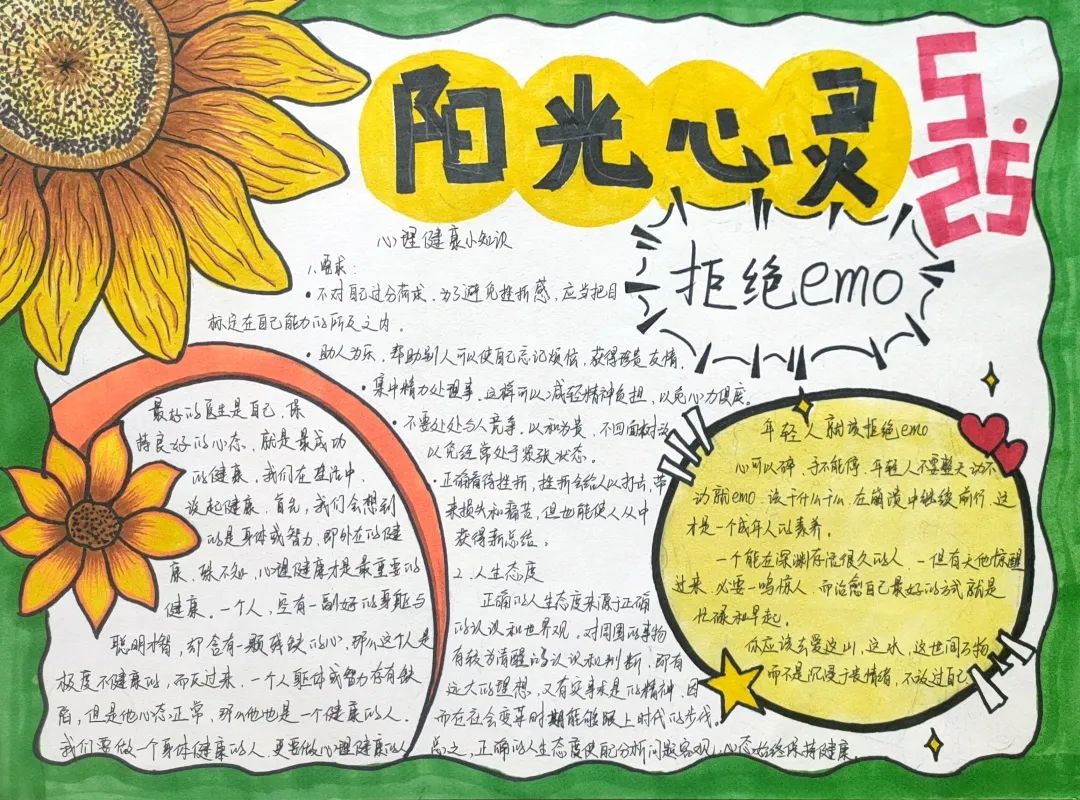 阳光心灵
5.25
拒绝emo
心理健康小知识
1.要求：
•不对自己过分苛求，为了避免挫折感，应当把目
标定在自己能力的所及之内。
•助人为乐，帮助别人可以使自己忘记烦恼，获得珍贵友情。
•集中精力处理事，这样可以减轻精神负担，以免心力俱疲。
•不要处处与人竞争，以和为贵，不四面树敌
以免经常处于紧张状态。
•正确看待挫折，挫折会给人以打击，带
来损失和痛苦，但也能使人从中
获得新总结。
2.人生态度
正确的人生态度来源于正确
的认识和世界观，对周围的事物
有较为清醒的认识和判断，即有
远大的理想，又有实事求是的精神，因
而在社会变革时期能够跟上时代的步伐。
总之，正确的人生态度使配分析问题客观，心态始终保持健康。
最好的医生是自己，保
持良好的心态，就是最成功
的健康，我们在生活中，
谈起健康，首先，我们会想到
的是身体或智力，即外在的健
康，殊不知，心理健康才是最重要的
健康。一个人，空有一副好的身躯与
聪明才智，却含有一颗残缺的心，那么这个人是
极度不健康的，而反过来，一个人躯体或智力存有缺
陷，但是他心态正常，那么他也是一个健康的人。
我们要做一个身体健康的人，更要做心理健康的人
年轻人就该拒绝emo
心可以碎，手不能停，年轻人不要整天动不
动就emo，该干什么干么，在崩溃中继续前行，这
才是一个成年人的素养。
一个能在深渊存活很久的人，一但有天他惊醒
过来，必要一鸣惊人，而治愈自己最好的方式就是
忙碌和早起。
你应该去爱这山，这水，这世间万物
而不是沉浸于丧情绪，不放过自己